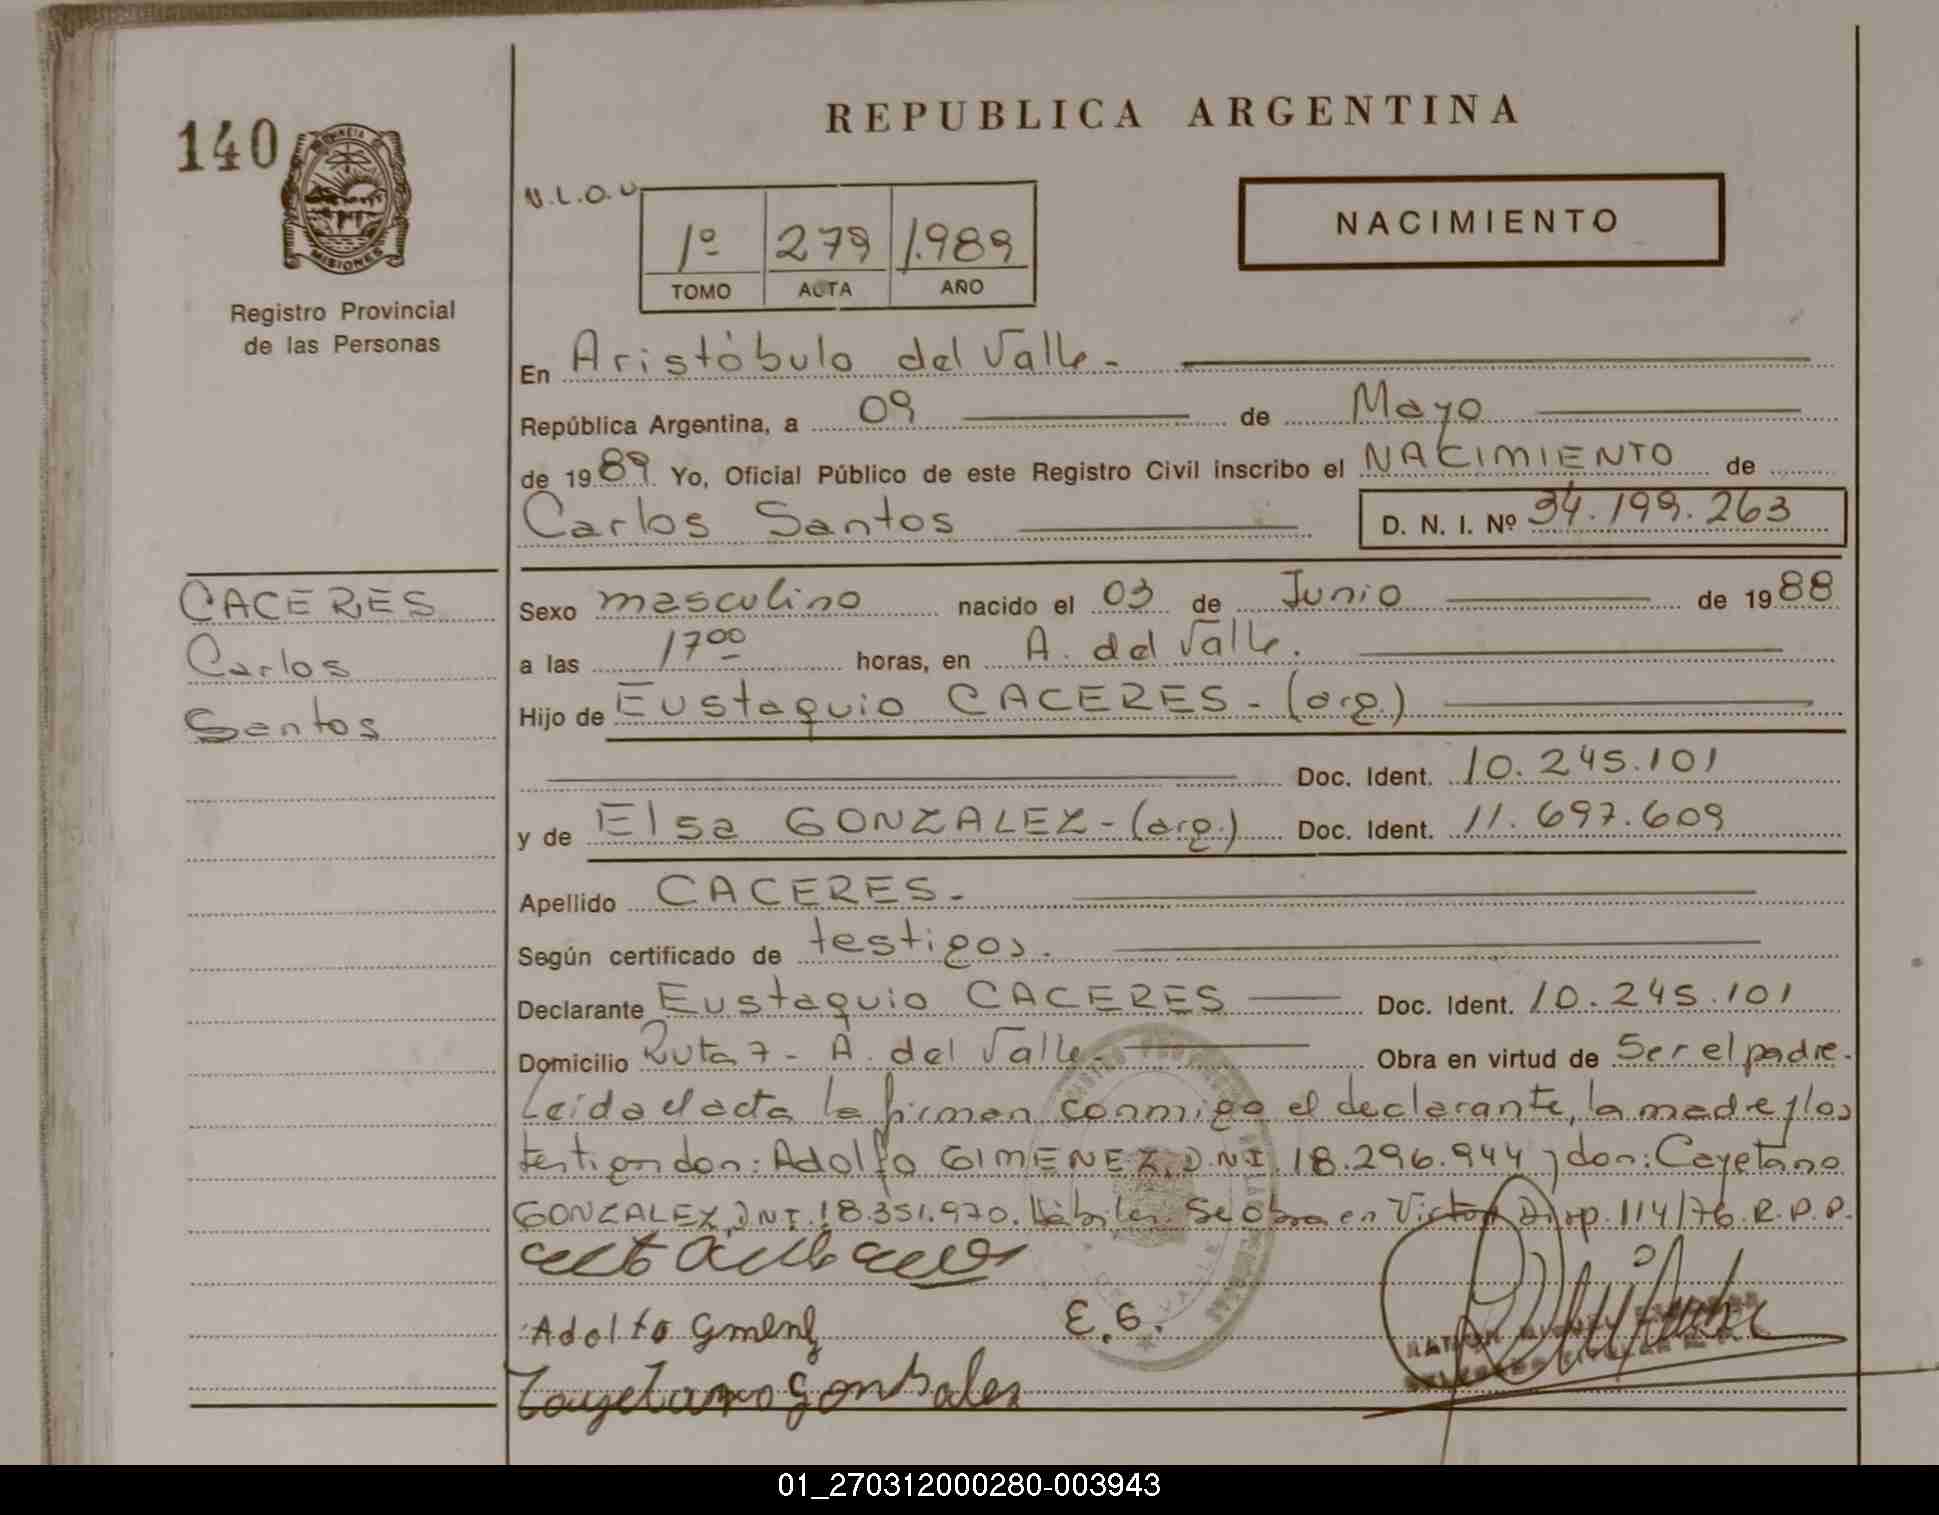 REPUBLICA ARGENTINA
140
PROVINCIA
MISIONES
Registro Provincial
de las Personas
N.L.O.U
1º 279 1.989
TOMO ACTA AÑO
NACIMIENTO
En Aristóbulo del Valle.-
República Argentina, a 09 de Mayo
de 1989 Yo, Oficial Público de este Registro Civil inscribo el NACIMIENTO de
Carlos Santos D. N. I. Nº 34.199.263
CACERES
Carlos
Santos
Sexo masculino nacido el 03 de Junio de 1988
a las 17 00 horas, en A. del Valle.
Hijo de Eustaquio CACERES - (arg.)
Doc. Ident. 10.245.101
y de Elsa GONZALEZ - (arg.) Doc. Ident. 11.697.609
Apellido CACERES.-
Según certificado de testigos.
Declarante Eustaquio CACERES Doc. Ident. 10.245.101
Domicilio Ruta 7 - A. del Valle.- Obra en virtud de Ser el padre.
Leída el acta la firman conmigo el declarante, la madre y los
testigos don: Adolfo GIMENEZ, D.N.I. 18.296.944 y don: Cayetano
GONZALEZ, DNI. 18.351.970. Hábiles. Se obra en Virtud Disp. 114/76. R.P.P.
Adolfo Gmenz E.G.
Cayetano Gonsales
01_270312000280-003943